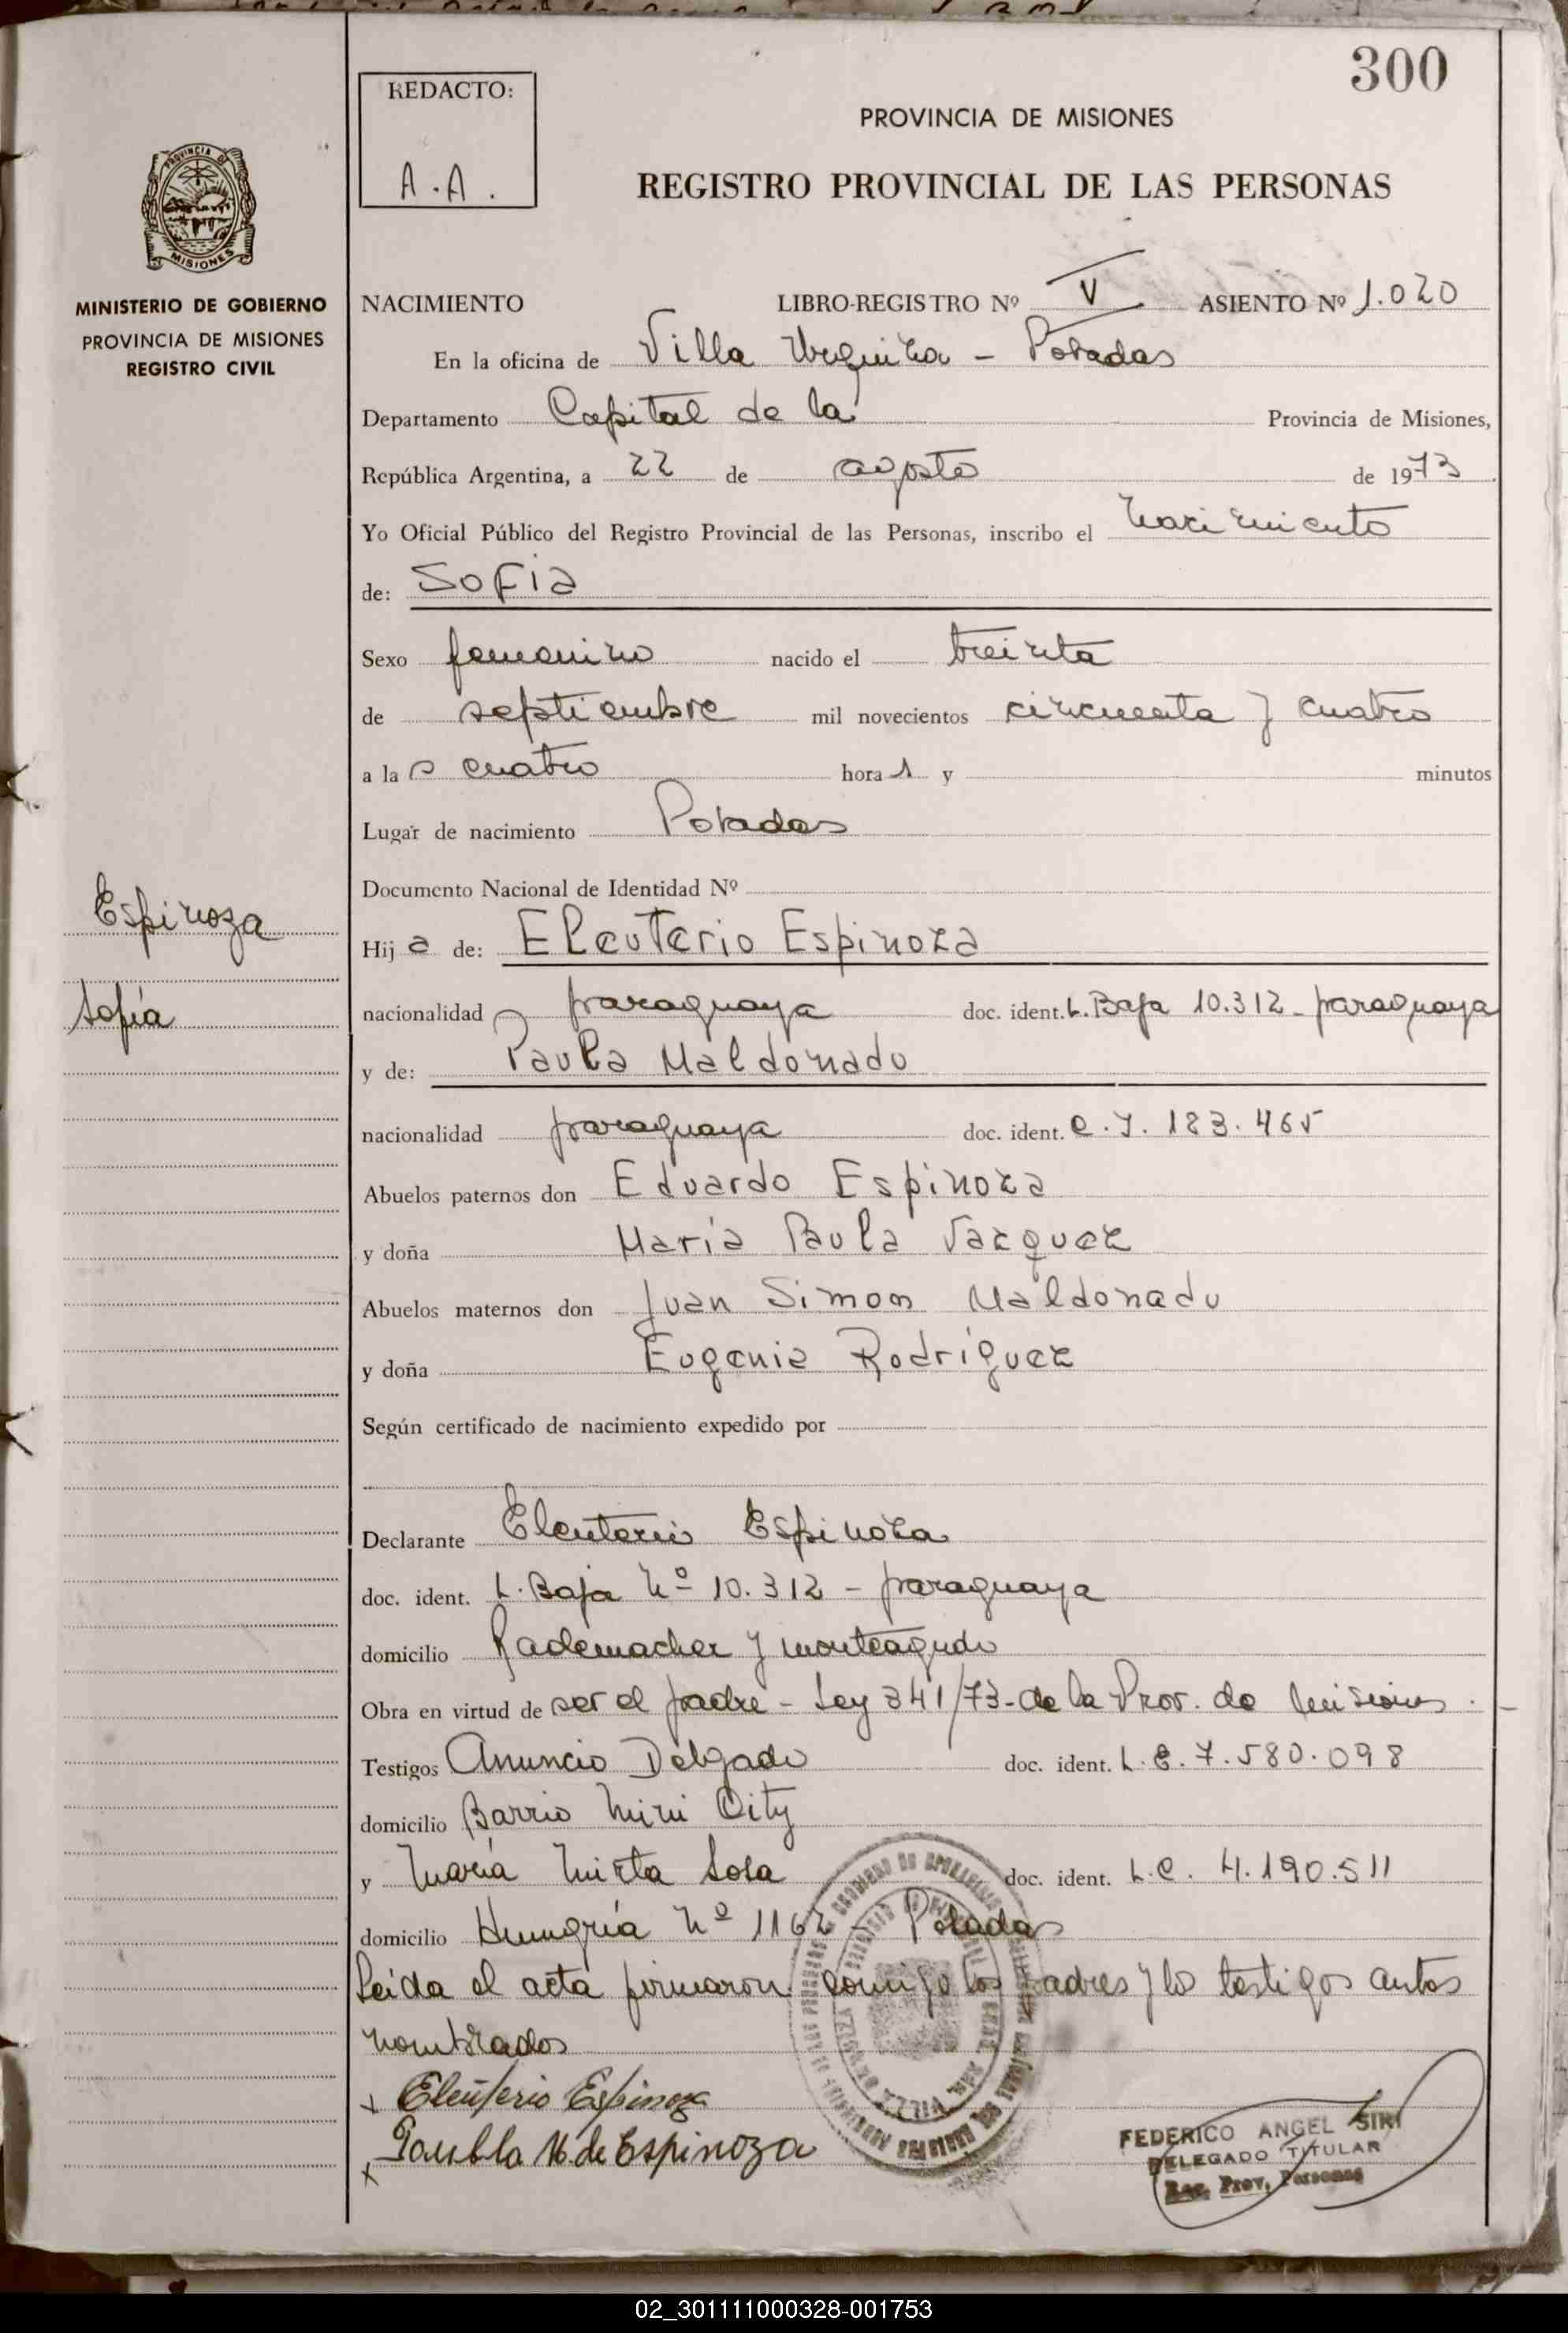 300
REDACTO:
A.A.
PROVINCIA DE MISIONES
REGISTRO PROVINCIAL DE LAS PERSONAS
PROVINCIA DE
MISIONES
MINISTERIO DE GOBIERNO
PROVINCIA DE MISIONES
REGISTRO CIVIL
NACIMIENTO LIBRO-REGISTRO Nº V ASIENTO Nº 1.020
En la oficina de Villa Urquiza - Posadas
Departamento Capital de la Provincia de Misiones,
República Argentina, a 22 de agosto de 1973
Yo Oficial Público del Registro Provincial de las Personas, inscribo el Nacimiento
de: Sofia
Sexo femenino nacido el treinta
de septiembre mil novecientos cincuenta y cuatro
a las cuatro horas y minutos
Lugar de nacimiento Posadas
Documento Nacional de Identidad Nº
Espinoza
Hija de: Eleuterio Espinoza
Sofía
nacionalidad paraguaya doc. ident. L. Baja 10.312 - paraguaya
y de: Paula Maldonado
nacionalidad paraguaya doc. ident. C.I. 183.465
Abuelos paternos don Eduardo Espinoza
y doña María Paula Vazquez
Abuelos maternos don Juan Simon Maldonado
y doña Eugenia Rodríguez
Según certificado de nacimiento expedido por
Declarante Eleuterio Espinoza
doc. ident. L. Baja Nº 10.312 - paraguaya
domicilio Rademacher y monteagudo
Obra en virtud de ser el padre - Ley 341/73 - de la Prov. de Misiones.-
Testigos Anuncio Delgado doc. ident. L.E. 7.580.098
domicilio Barrio Mini City
y María Mirta Sosa doc. ident. L.C. 4.190.511
domicilio Hungría Nº 1162 - Posadas
Leida el acta firmaron conmigo los padres y lo testigos antes
nombrados
x Eleuterio Espinoza
x Paubla M. de Espinoza
FEDERICO ANGEL SIRI
DELEGADO TITULAR
Reg. Prov. Personas
02_301111000328-001753